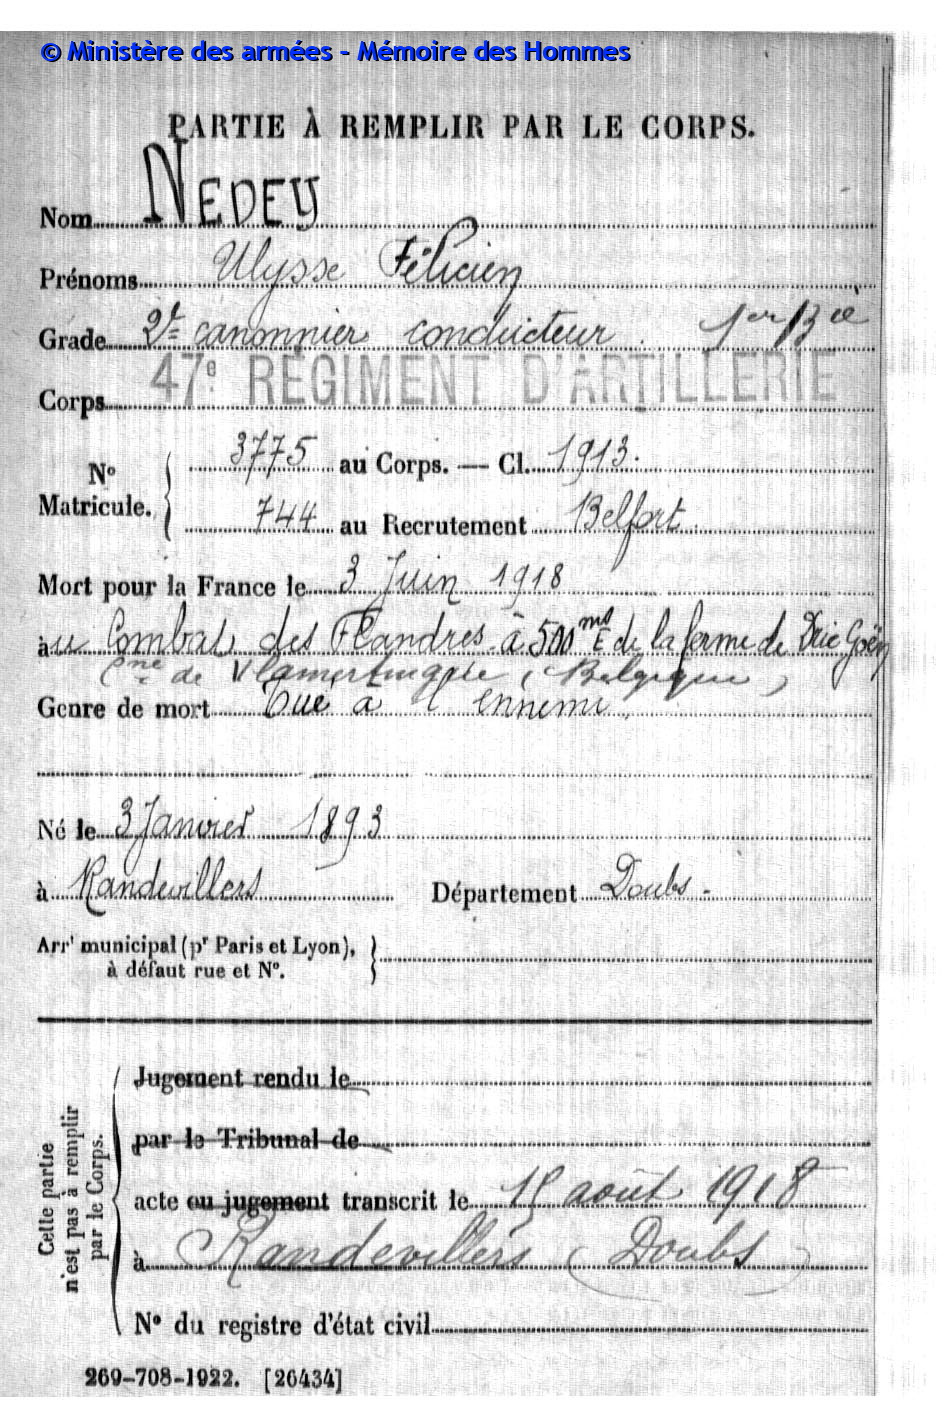 © Ministère des armées - Mémoire des Hommes
PARTIE À REMPLIR PAR LE CORPS.
Nom NEDEY
Prénoms Ulysse Félicien
Grade 2e canonnier conducteur. 1er Bie
Corps 47e RÉGIMENT D'ARTILLERIE
N° Matricule. 3775 au Corps. — Cl. 1913.
744 au Recrutement Belfort
Mort pour la France le 3 Juin 1918
au Combat des Flandres à 500 ms E de la ferme de Drie Goën
Cne de Vlamertingue (Belgique)
Genre de mort Tué à l'ennemi
Né le 3 Janvier 1893
à Randevillers Département Doubs -
Arrt municipal (pr Paris et Lyon),
à défaut rue et N°.
Cette partie
n'est pas à remplir
par le Corps.
Jugement rendu le
par le Tribunal de
acte ou jugement transcrit le 15 août 1918
à Randevillers (Doubs)
N° du registre d'état civil
269-708-1922. [26434]